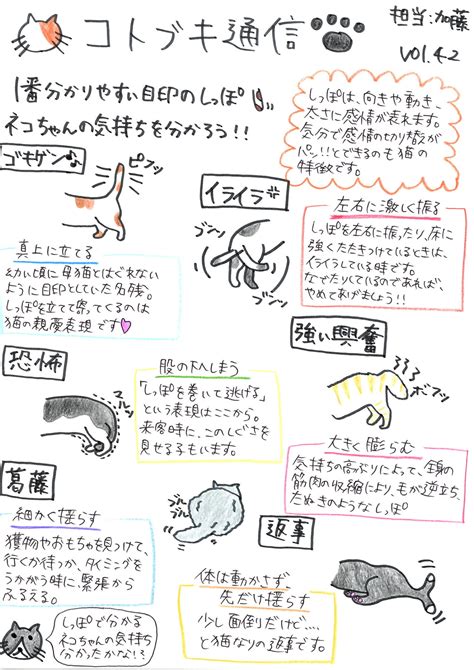 コトブキ通信
担当:加藤
vol.42
1番分かりやすい目印のしっぽ
ネコちゃんの気持ちを分かろう!!
しっぽは、向きや動き、
太さに感情が表れます。
気分で感情の切り替えが
パッ!!とできるのも猫の
特徴です。
ゴキゲン
ピーン
真上に立てる
幼い頃に母猫とはぐれない
ように目印としていた名残。
しっぽを立てて寄ってくるのは
猫の親愛表現です
イライラ
ブンッ
ブンッ
左右に激しく振る
しっぽを左右に振ったり、床に
強くたたきつけているときは、
イライラしている時です。
なでたりしているのであれば、
やめてあげましょう!!
恐怖
マルッ
股の下へしまう
「しっぽを巻いて逃げる」
という表現はここから。
来客時に、このしぐさを
見せる子もいます。
強い興奮
ボフッ
大きく膨らむ
気持ちの高ぶりによって、全身の
筋肉の収縮により、毛が逆立ち、
たぬきのようなしっぽ
葛藤
ぶるぶる
細かく揺らす
獲物やおもちゃを見つけて、
行くか待つか、タイミングを
うかがう時に、緊張から
ふるえる。
返事
体は動かさず、
先だけ揺らす
少し面倒だけど…
と猫なりの返事です。
しっぽで分かる
ネコちゃんの気持ち
分かったかな!?